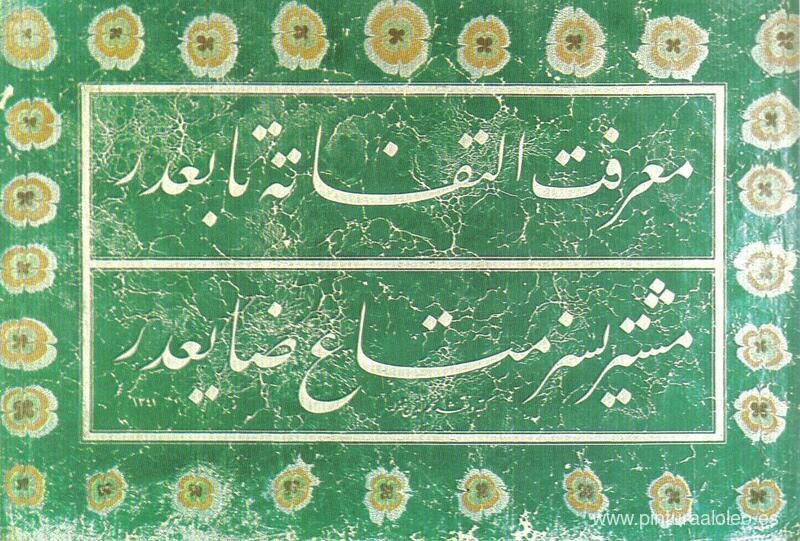 معرفت التفاته تابعدر
مشتريسز متاع ضايعدر
www.pinturaaloleo.es